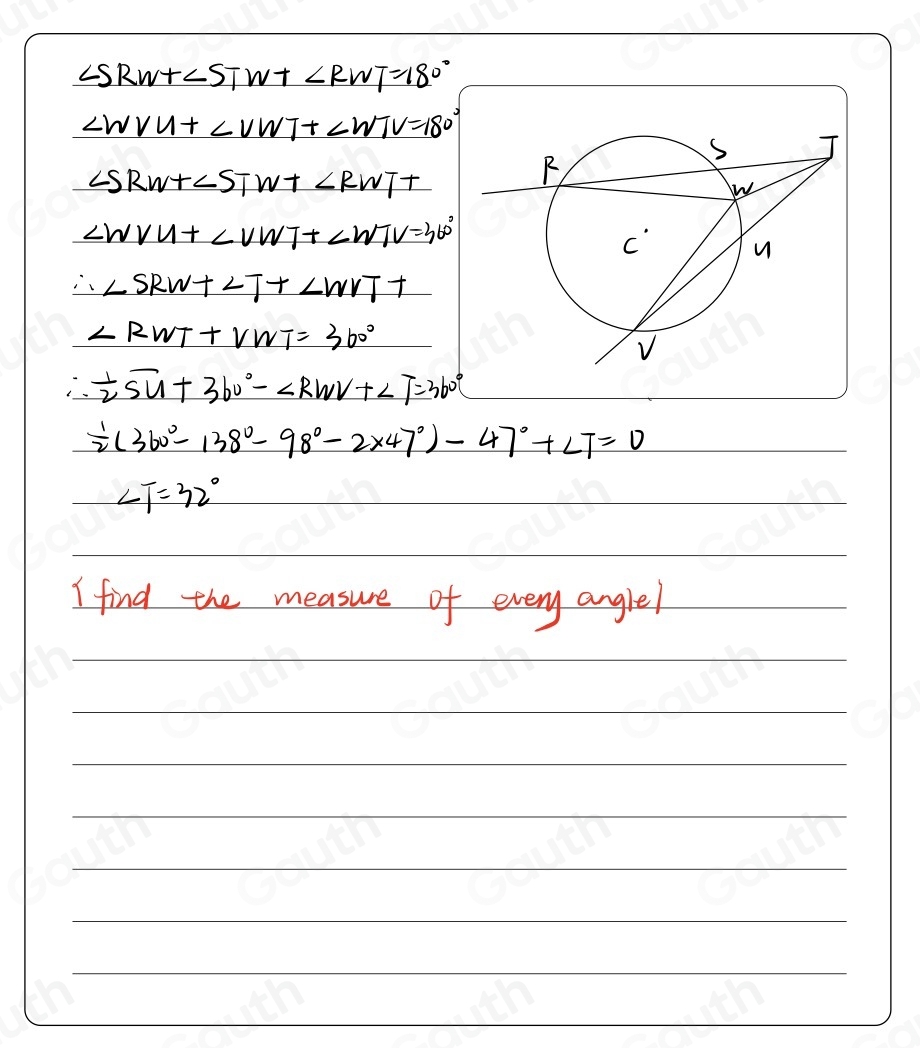 ∠SRW+∠STW+ ∠RWT=180°
∠WVU+ ∠VWT+∠WTV=180°
∠SRW+∠STW+ ∠RWT+
∠WVU+ ∠VWT+∠WTV=360°
∴∠SRW+∠T+∠WVT+
∠RWT+VWT= 360°
∴½SU+360°-∠RWV+∠T=360°
½(360°-138°-98°-2×47°)-47°+∠T=0
∠T=32°
R
S
T
W
C
U
V
{find the measure of every angle}